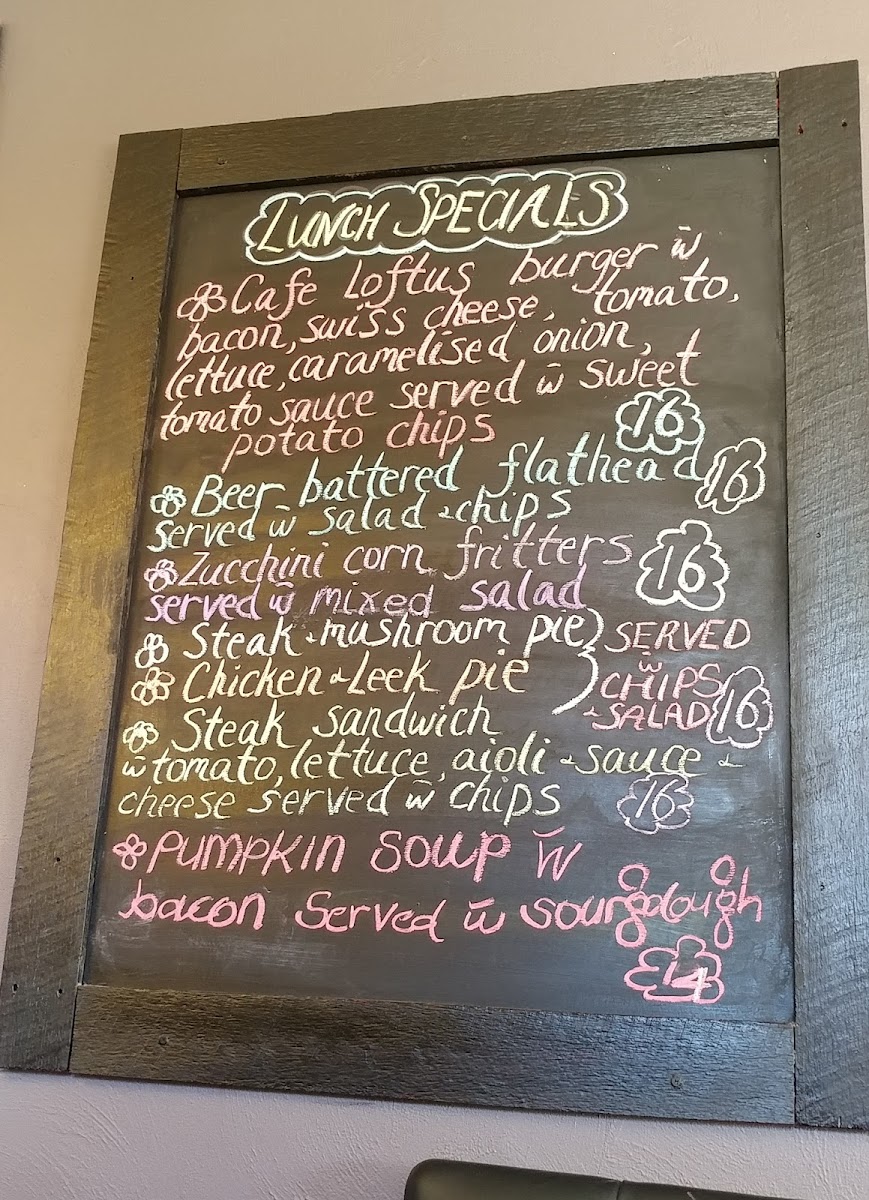 LUNCH SPECIALS
Cafe Loftus burger w̄
bacon, swiss cheese, tomato,
lettuce, caramelised onion,
tomato sauce served w̄ sweet
potato chips 16
Beer battered flathead 16
served w̄ salad & chips
Zucchini corn fritters 16
served w̄ mixed salad
Steak & mushroom pie } SERVED
w̄
Chicken & Leek pie } CHIPS
& SALAD 16
Steak sandwich
w̄ tomato, lettuce, aioli & sauce &
cheese served w̄ chips 16
PUMPKIN SOUP w̄
bacon served w̄ sourdough
14